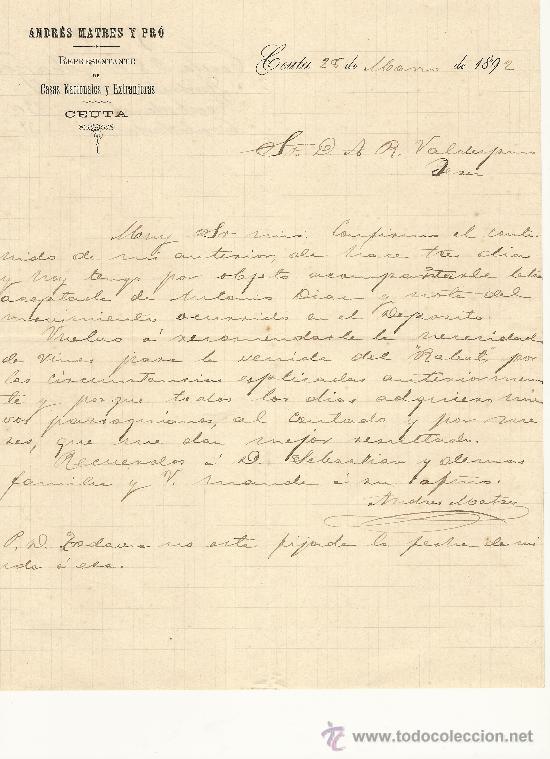 ANDRÉS MATRES Y PRÓ
REPRESENTANTE
DE
Casas Nacionales y Extranjeras
CEUTA
Ceuta 28 de Marzo de 1892
Sr. D. A. R. Valdespino
Jerez
Muy Sr mio: Confirmo el conte-
nido de mi anterior, de hace tres dias
y hoy tengo por objeto acompañarle letra
aceptada de Antonio Diaz y nota del
movimiento ocurrido en el Deposito.
Vuelvo á recomendarle la necesidad
de vinos para la venida del "Rabat" por
las circunstancias esplicadas anteriormen-
te y porque todos los dias adquiero nue-
vos parroquianos, al contado y por me-
ses, que me dan mejor resultado.
Recuerdos á D. Sebastian y demas
familia y V. mande á su afmo.
Andres Matres
P. D. Todavia no está fijada la fecha de mi
ida á esa.
www.todocoleccion.net